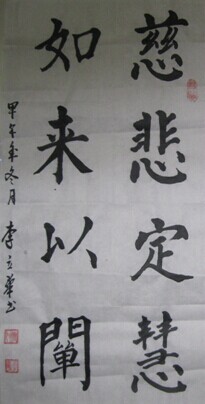 慈悲定慧
如来以闡
甲午年冬月 李立华书